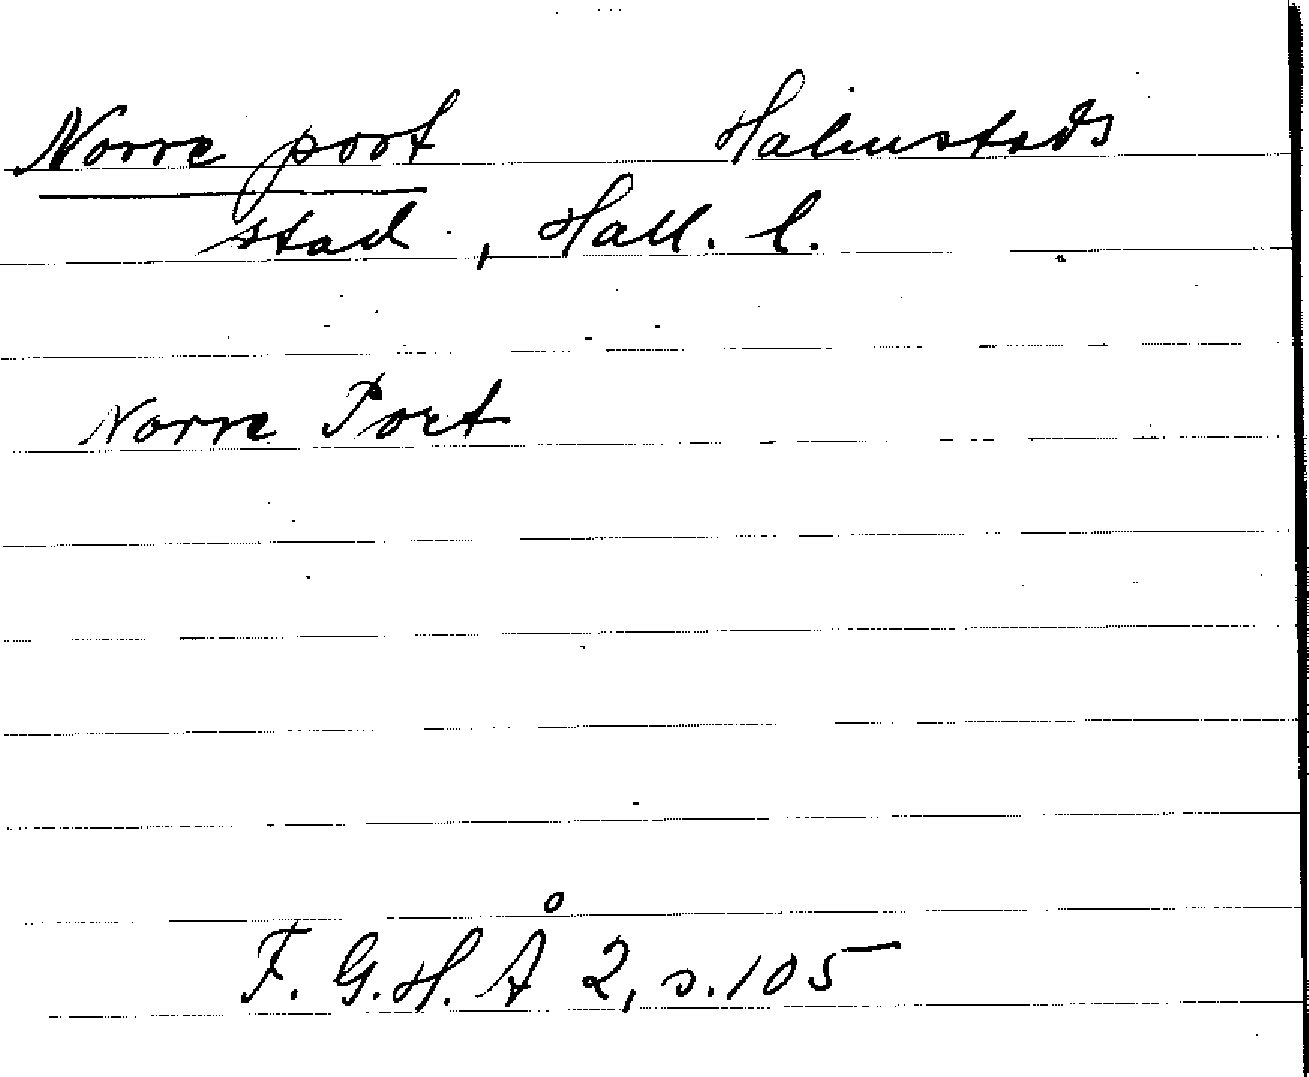 Norre port Halmstads
stad, Hall. l.
Norre Port
F. G. H. Å 2, s. 105